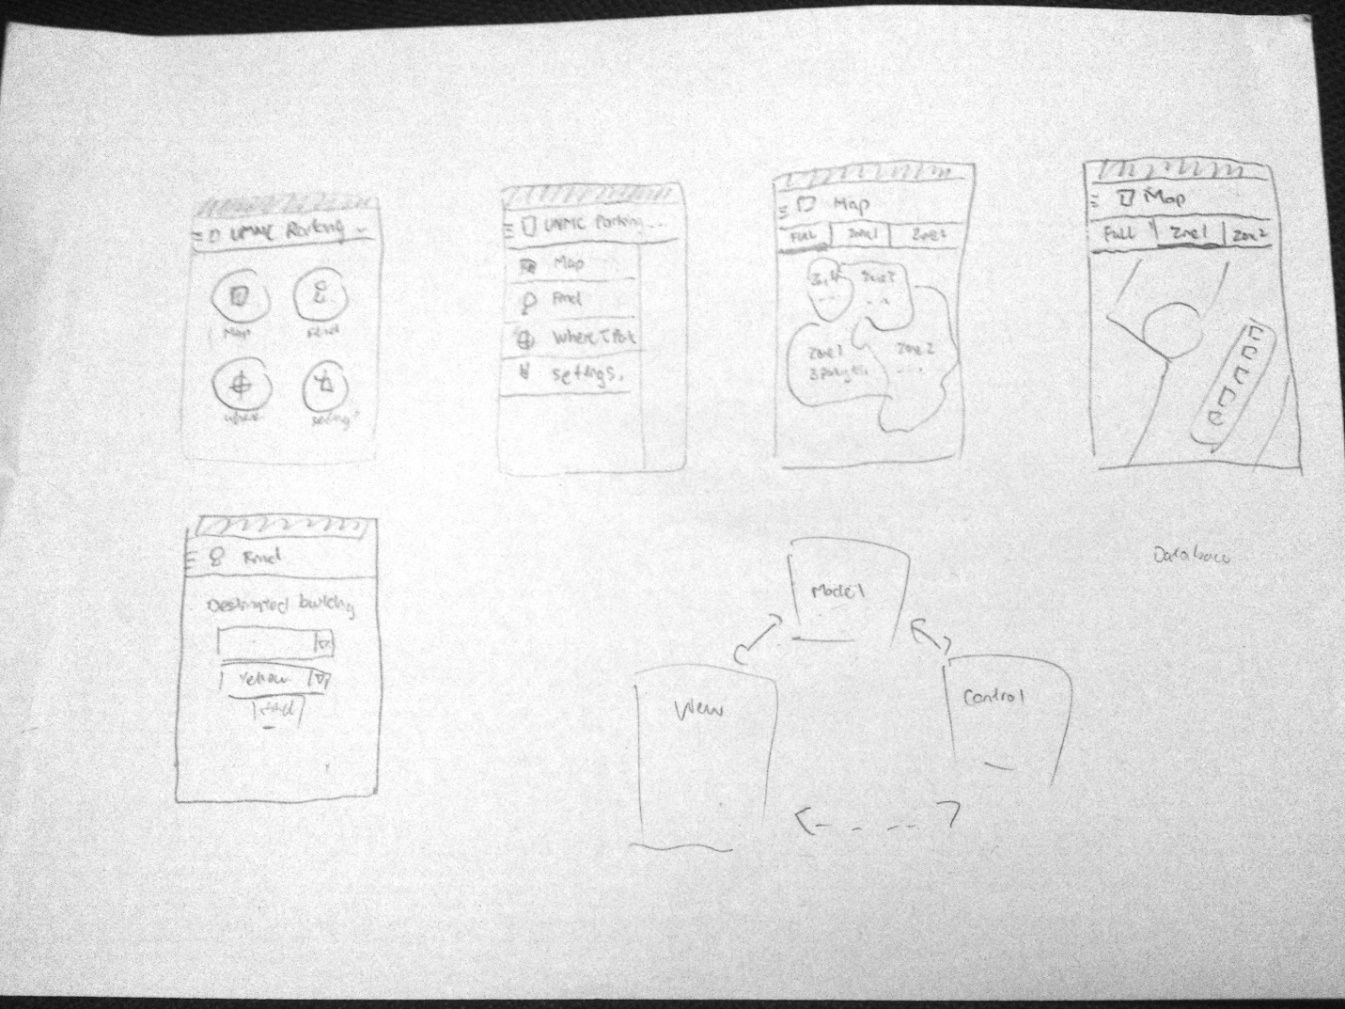 UNMC Parking ..
Map
Find
where
setting
UNMC Parking ...
Map
Find
Where I Park
settings.
Map
Full Zone1 Zone2
Zone3
Zone1
Zone2
...
Map
Full Zone1 Zone2
Find
Destinated building
Yellow
find
Model
View
Control
Database